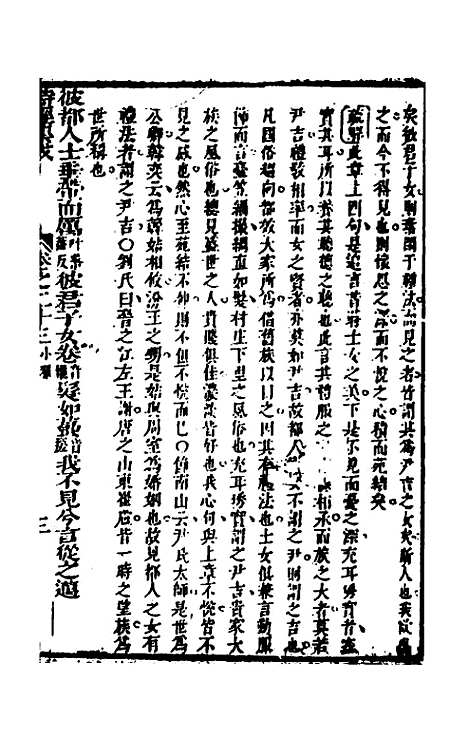 矣彼君子女則習閑于禮法而見之者皆謂其為尹吉之女矣斯人也我
之而今不得見也則懷思之深而不悅之心積而苑結矣
疏解此章上四句是追言昔時士女之美下是不見而憂之深充耳琇實者盖
實其耳所以其聽德之聰也此言其將服之 相承而族之大者其若
尹吉禮敎相率而女之賢者亦莫如尹吉故都人 女不謂之尹則謂之吉也
凡國俗趨向都放大家所為舊族以 之因其有禮法也士女俱兼言動服
飾而言臺笠緇撮綢直如髮村庄下里之風俗也充耳琇實謂之尹吉貴家大
族之風俗也總見盛世之人貴賤俱佳濃淡皆好也我心何與上章不悅皆不
見之感也然心至苑結不伸則不但不悅而已〇節南山云尹氏太師是世為
公卿韓奕云為韓姞相攸汾王之甥是姞與周室為婚姻也故見都人之女有
禮法者謂之尹吉〇劉氏曰晉之江左王謝唐之山東崔盧皆一時之望族為
世所稱也
彼都人士垂帶而厲叶落蓋反彼君子女卷音權髮如蠆 我不見兮言從之邁
詩經 卷之二十三小雅 三